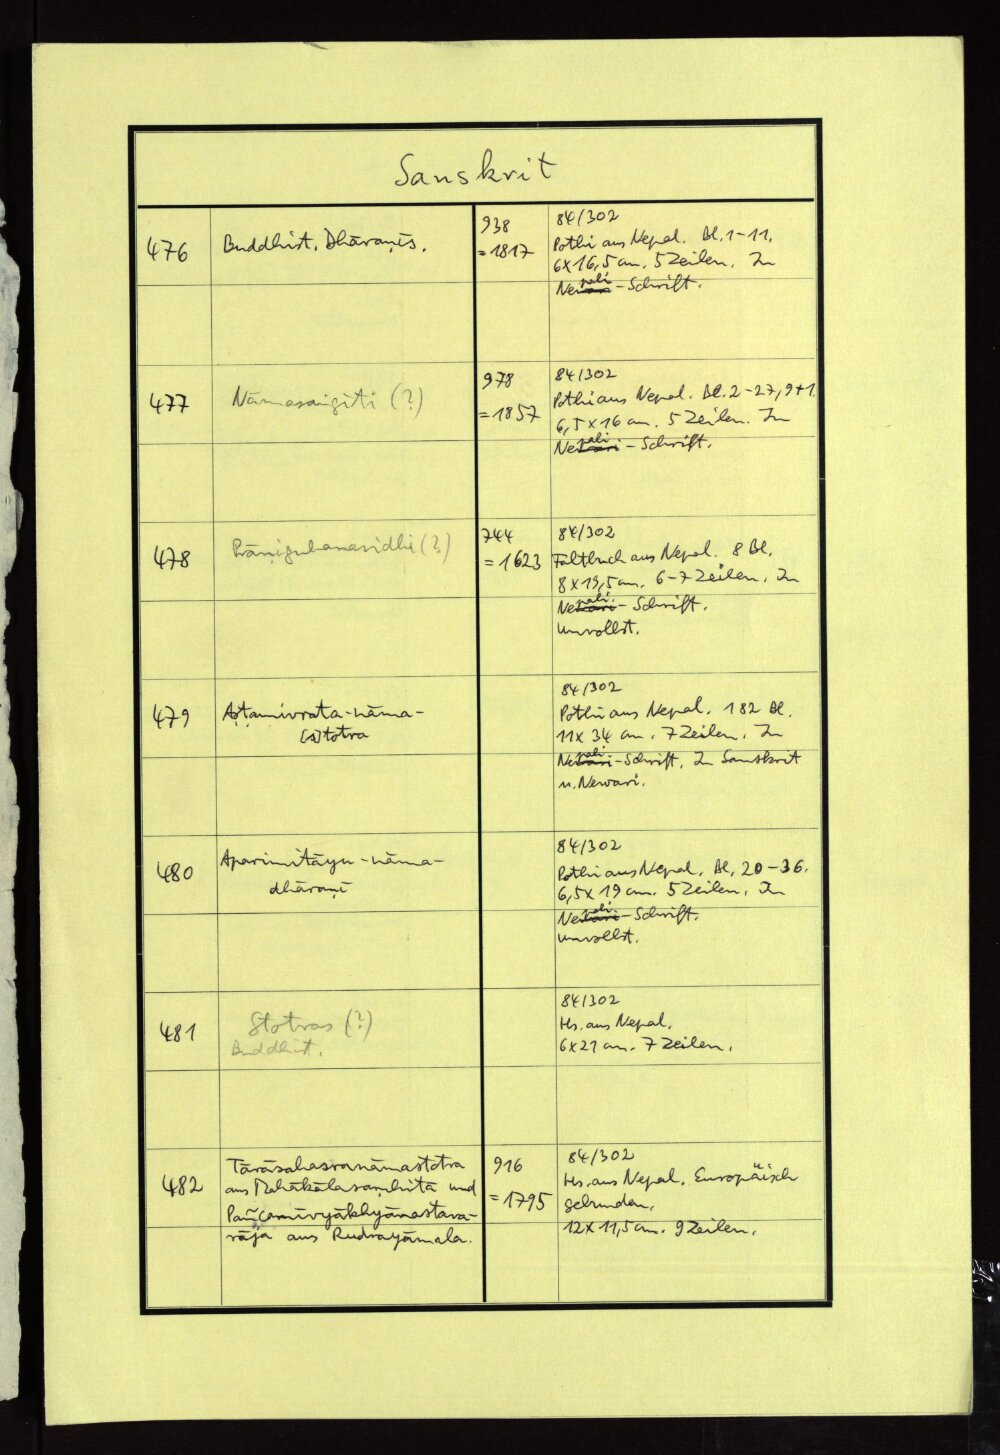 Sanskrit
476
Buddhist. Dhāraṇīs.
938
= 1817
84/302
Pothi aus Nepal. Bl. 1-11.
6x16,5 cm. 5 Zeilen. In
Nepali-Schrift.
477
Nāmasaṅgīti (?)
978
= 1857
84/302
Pothi aus Nepal. Bl. 2-27, 9+1.
6,5x16 cm. 5 Zeilen. In
Nepali-Schrift.
478
(?)
744
= 1623
84/302
Faltbuch aus Nepal. 8 Bl.
8x19,5 cm. 6-7 Zeilen. In
Nepali-Schrift.
Unvollst.
479
Aṣṭamīvrata-nāma-
[s]totra
84/302
Pothi aus Nepal. 182 Bl.
11x34 cm. 7 Zeilen. In
Nepali-Schrift. In Sanskrit
u. Newari.
480
Aparimitāyu-nāma-
dhāraṇī
84/302
Pothi aus Nepal. Bl. 20-36.
6,5x19 cm. 5 Zeilen. In
Nepali-Schrift.
Unvollst.
481
Stotras (?)
Buddhist.
84/302
Hs. aus Nepal.
6x21 cm. 7 Zeilen.
482
Tārāsahasranāmastotra
aus Mahākālasaṃhitā und
Pañcamīvyākhyānastava-
rāja aus Rudrayāmala.
916
= 1795
84/302
Hs. aus Nepal. Europäisch
gebunden.
12x11,5 cm. 9 Zeilen.